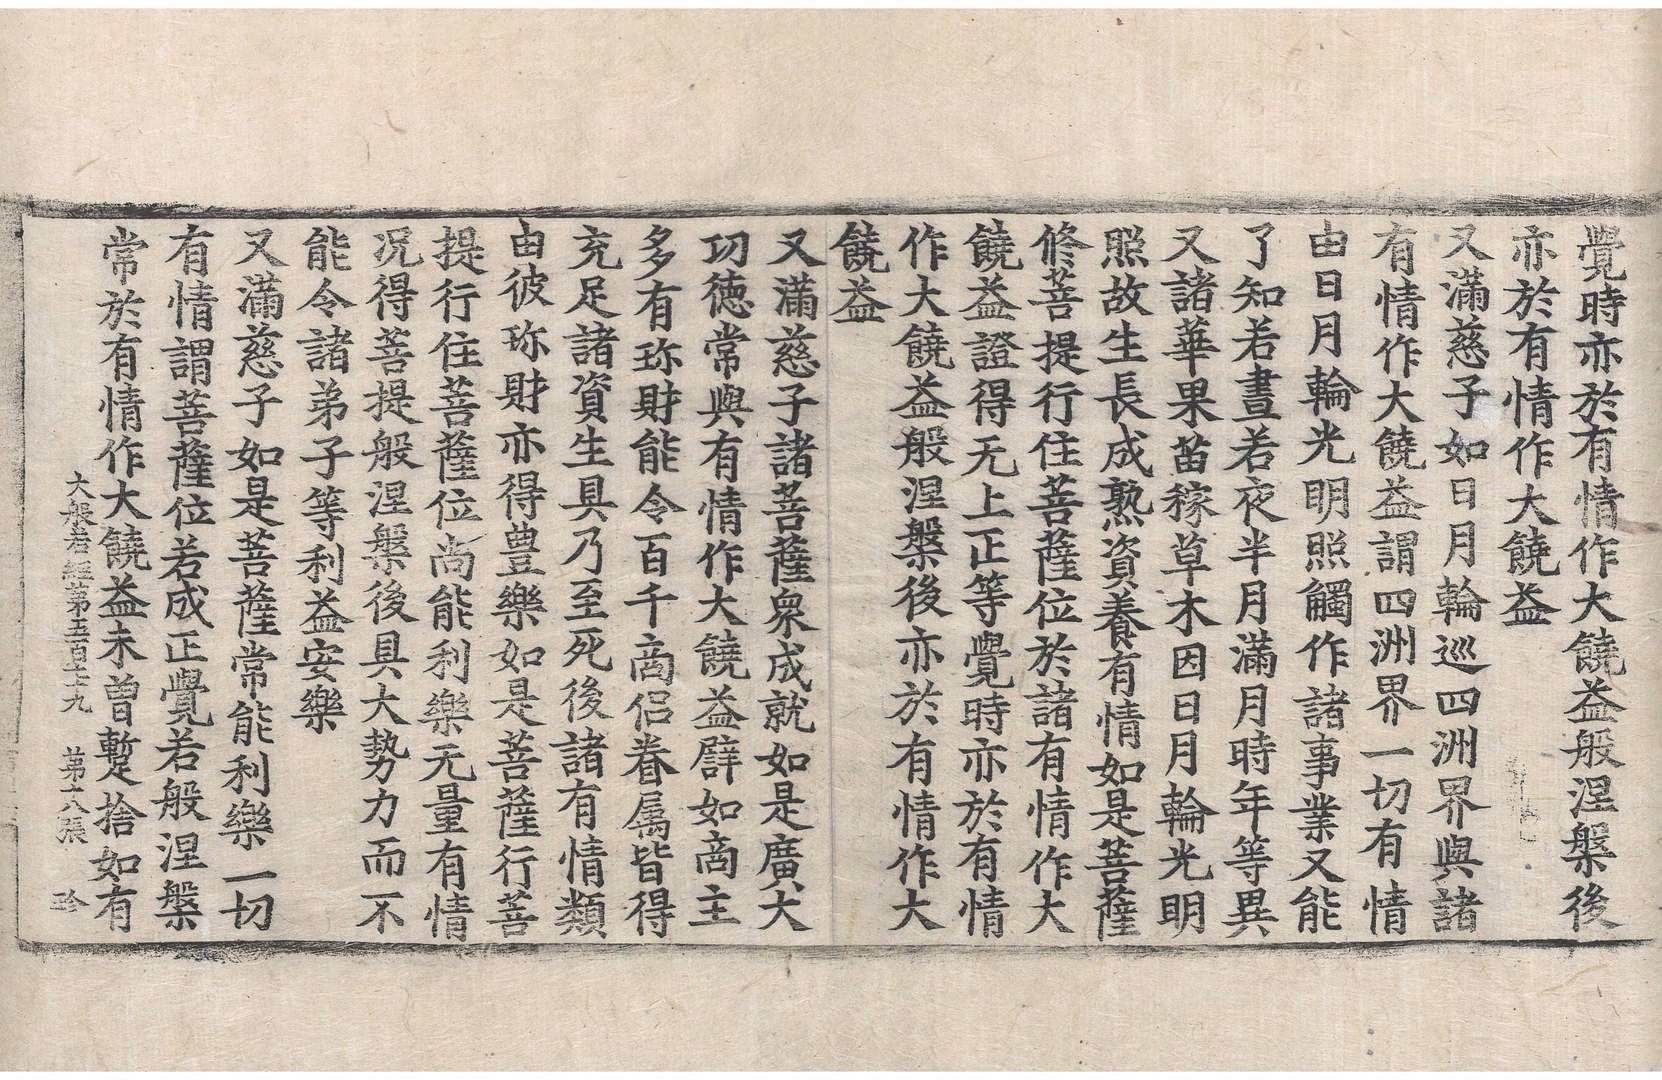 覺時亦於有情作大饒益般涅槃後
亦於有情作大饒益
又滿慈子如日月輪巡四洲界與諸
有情作大饒益謂四洲界一切有情
由日月輪光明照觸作諸事業又能
了知若晝若夜半月滿月時年等異
又諸華果苗稼草木因日月輪光明
照故生長成熟資養有情如是菩薩
修菩提行住菩薩位於諸有情作大
饒益證得无上正等覺時亦於有情
作大饒益般涅槃後亦於有情作大
饒益
又滿慈子諸菩薩衆成就如是廣大
功德常與有情作大饒益譬如啇主
多有珎財能令百千啇侣眷属皆得
充足諸資生具乃至死後諸有情類
由彼珎財亦得豊樂如是菩薩行菩
提行住菩薩位尚能利樂无量有情
况得菩提般涅槃後具大勢力而不
能令諸弟子等利益安樂
又滿慈子如是菩薩常能利樂一切
有情謂菩薩位若成正覺若般涅槃
常於有情作大饒益未曾蹔捨如有
大般若經第五百七十九 第十八張 珍